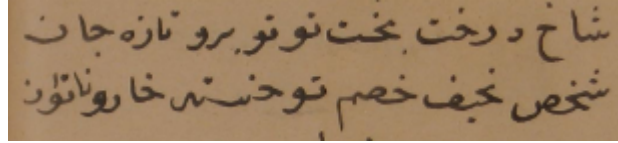 شاخ درخت بخت تو نو بر و تازه جان
شخص نحیف خصم تو خسته خار و ناتوان